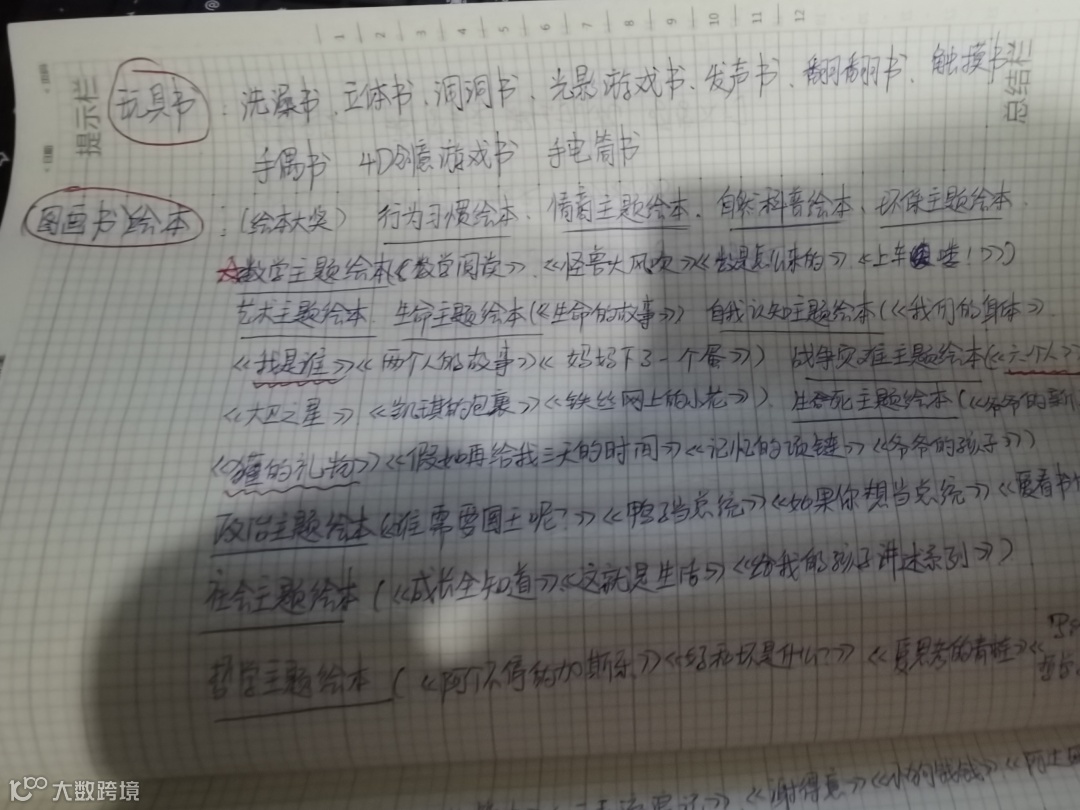 1 2 3 4 5 6 7 8 9 10 11 12
提示栏
总结栏
玩具书：洗澡书、立体书、洞洞书、光影游戏书、发声书、翻翻书、触摸书
手偶书 4D创意游戏书 手电筒书
图画书/绘本：（绘本大奖）行为习惯绘本、情商主题绘本、自然科普绘本、环保主题绘本
☆数学主题绘本（《数学阅读》、《怪兽大风吹》《是怎么来的》《上车 啦！》）
艺术主题绘本 生命主题绘本（《生命的故事》） 自我认知主题绘本（《我们的身体》
《我是谁》《两个人的故事》《妈妈下了一个蛋》） 战争灾难主题绘本（《六个人》
《大卫之星》《凯琪的包裹》《铁丝网上的小花》）、生死主题绘本（《爷爷的
《獾的礼物》《假如再给我三天的时间》《记忆的项链》《爷爷的孩子》）
政治主题绘本（《谁需要国王呢？》《鸭子当总统》《如果你想当总统》《
社会主题绘本（《成长全知道》《这就是生活》《给我的孩子讲述系列》）
哲学主题绘本（《问个不停的加斯东》《好和坏是什么？》《爱思考的青蛙》《
《谢得意》《小狗钱钱》《
大数跨境